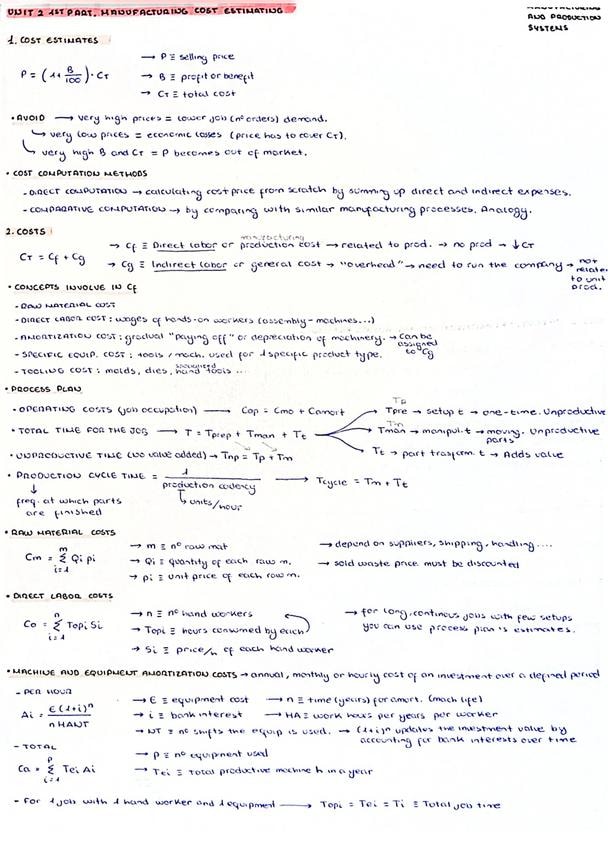 UNIT 2 1ST PART. MANUFACTURING COST ESTIMATING
MANUFACTURING
AND PRODUCTION
SYSTEMS
1. COST ESTIMATES
P = (1+ B/100) · CT
→ P ≡ selling price
→ B ≡ profit or benefit
→ CT ≡ total cost
• AVOID → very high prices = lower job (nº orders) demand.
↳ very low prices = economic losses (price has to cover CT).
↳ very high B and CT = P becomes out of market.
• COST COMPUTATION METHODS
- DIRECT COMPUTATION → calculating cost price from scratch by summing up direct and indirect expenses.
- COMPARATIVE COMPUTATION → by comparing with similar manufacturing processes. Analogy.
2. COSTS
CT = Cf + Cg
manufacturing
→ Cf ≡ Direct labor or production cost → related to prod. → no prod → ↓CT
→ Cg ≡ Indirect labor or general cost → "overhead" → need to run the company → not related to unit prod.
• CONCEPTS INVOLVE IN Cf
- RAW MATERIAL COST
- DIRECT LABOR COST: wages of hands-on workers (assembly-machines...)
- AMORTIZATION COST: gradual "paying off" or depreciation of machinery. → can be assigned to Cg
- SPECIFIC EQUIP. COST: tools / mach. used for 1 specific product type.
- TOOLING COST: molds, dies, specialized hand tools ...
• PROCESS PLAN
• OPERATING COSTS (job occupation) → Cop = Cmo + Camort
• TOTAL TIME FOR THE JOB → T = Tprep + Tman + Tt
Tp
→ Tpre → setup t → one-time. Unproductive
Tm
→ Tman → manipul. t → moving parts. Unproductive
→ Tt → part trasform. t → Adds value
• UNPRODUCTIVE TIME (no value added) → Tnp = Tp + Tm
• PRODUCTION CYCLE TIME = 1 / production cadency → Tcycle = Tm + Tt
↓
freq. at which parts are finished
↳ units/hour
• RAW MATERIAL COSTS
Cm = m Σ i=1 Qi pi
→ m ≡ nº raw mat
→ Qi ≡ quantity of each raw m.
→ pi ≡ unit price of each raw m.
→ depend on suppliers, shipping, handling ....
→ sold waste price must be discounted
• DIRECT LABOR COSTS
Co = n Σ i=1 Topi Si
→ n ≡ nº hand workers
→ Topi ≡ hours consumed by each
→ Si ≡ price/h of each hand worker
→ for long, continous jobs with few setups
you can use process plan's estimates.
• MACHINE AND EQUIPMENT AMORTIZATION COSTS → annual, monthly or hourly cost of an investment over a defined period
- PER HOUR
Ai = E(1+i)^n / n HA NT
→ E ≡ equipment cost → n ≡ time (years) for amort. (mach life)
→ i ≡ bank interest → HA ≡ work hours per years per worker
→ NT ≡ nº shifts the equip is used. → (1+i)^n updates the investment value by
accounting for bank interests over time
- TOTAL
Ca = p Σ i=1 Tei Ai
→ p ≡ nº equipment used
→ Tei ≡ total productive machine h in a year
- For 1 job with 1 hand worker and 1 equipment → Topi = Tei = Ti ≡ Total job time